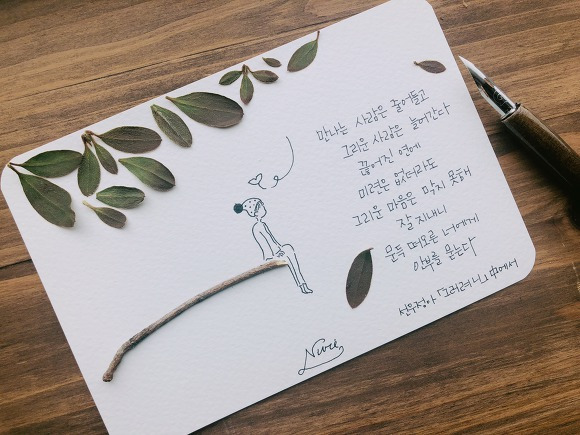 만나는 사람은 줄어들고
그리운 사람은 늘어간다
끊어진 연에
미련은 없더라도
그리운 마음은 막지 못해
잘 지내니
문득 떠오른 너에게
안부를 묻는다
선우정아 「그러려니」 中에서